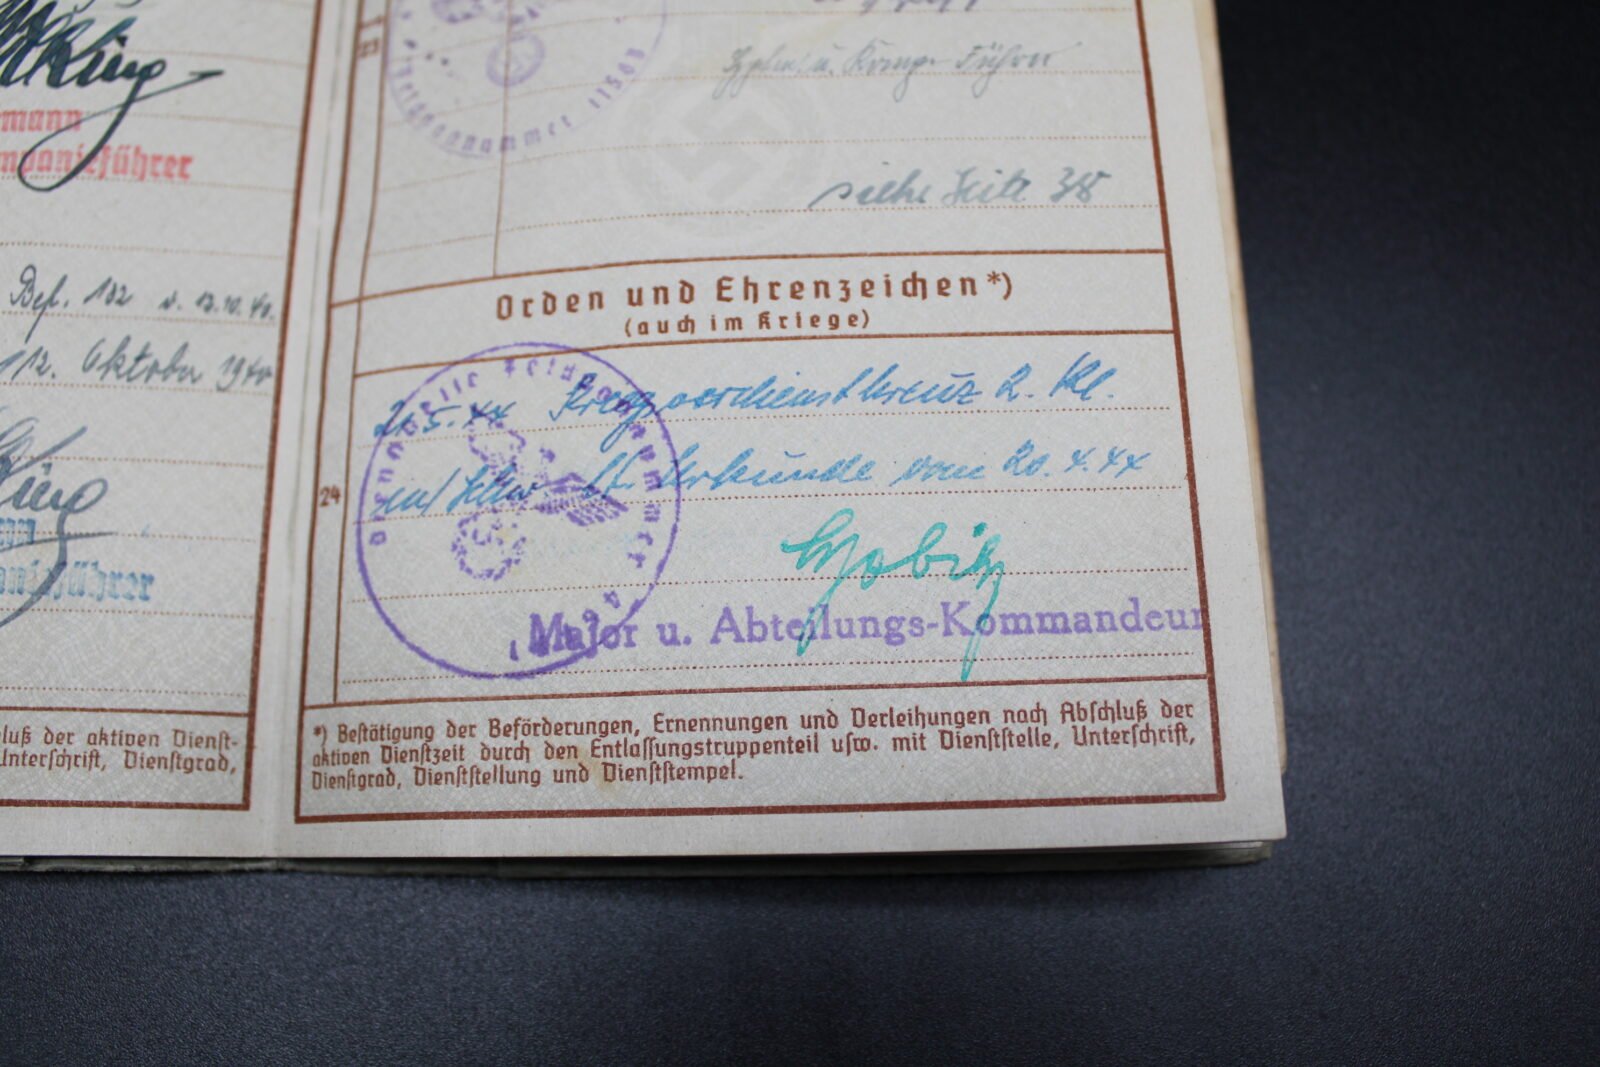 mann
mpanieführer
Bef. 132 v. 13.10.40.
112. Oktober 1940
führer
luß der aktiven Dienst-
Unterschrift, Dienstgrad,
23
Feldpostnummer 11503
Führer
siehe Seite 38
Orden und Ehrenzeichen*)
(auch im Kriege)
24
21.5.44 Kriegsverdienstkreuz 2. Kl.
m/ Schw. lt. Urkunde vom 20.4.44
Dienststelle Feldpostnummer
Major u. Abteilungs-Kommandeur
*) Bestätigung der Beförderungen, Ernennungen und Verleihungen nach Abschluß der
aktiven Dienstzeit durch den Entlassungstruppenteil usw. mit Dienststelle, Unterschrift,
Dienstgrad, Dienststellung und Dienststempel.